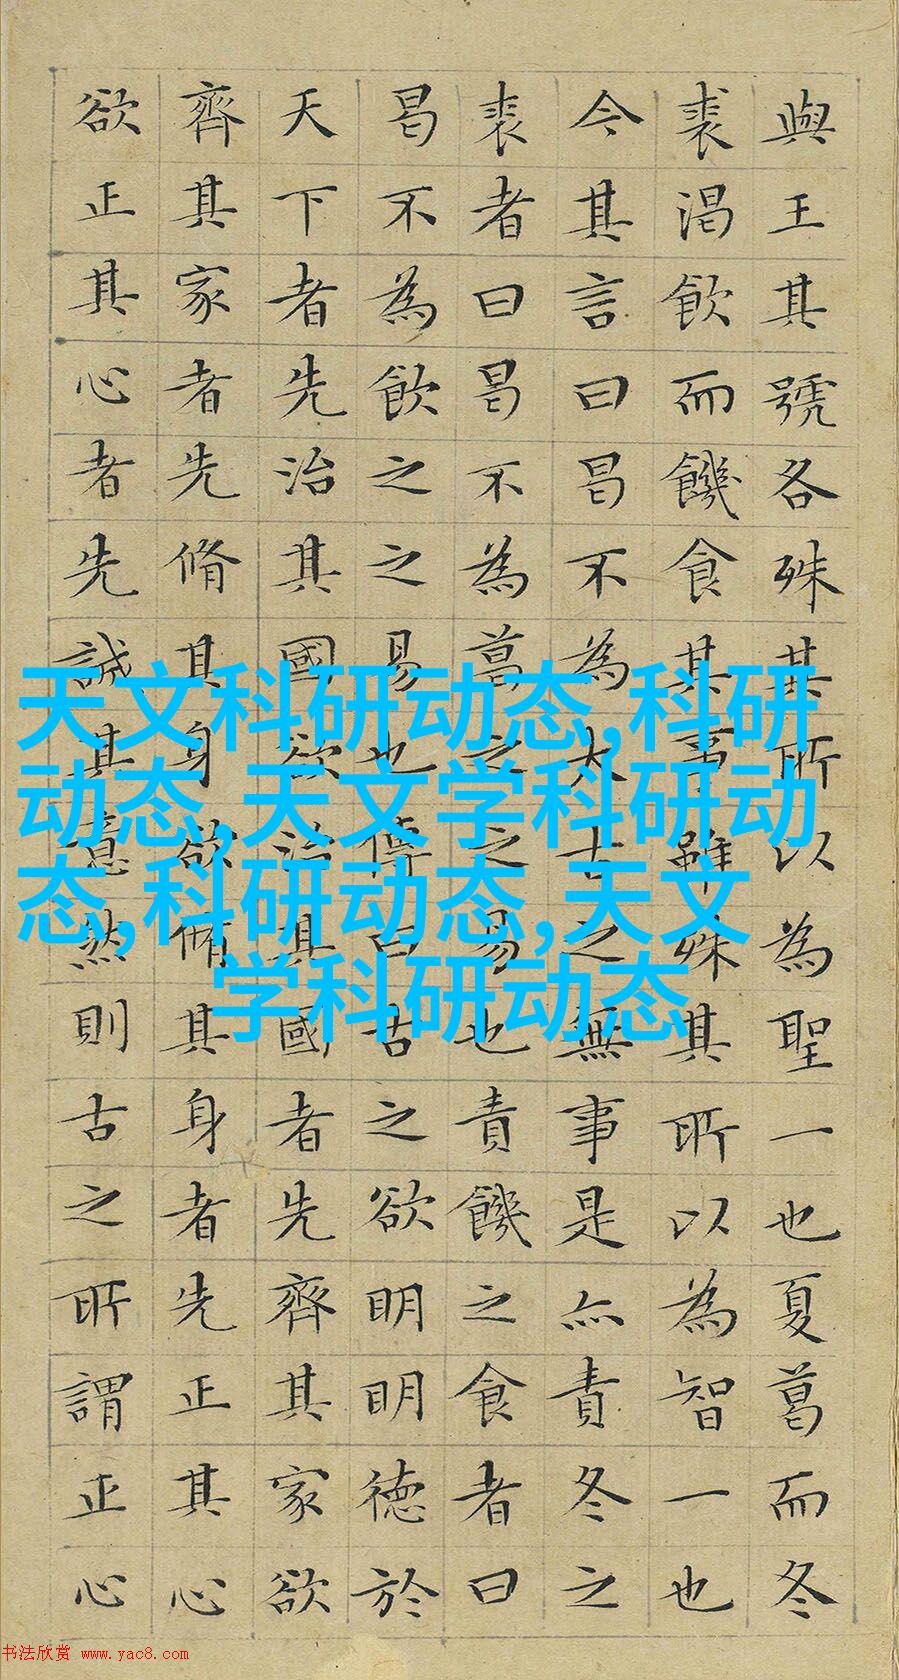 與王其號各殊其所以為聖一也夏葛而冬
裘渴飲而饑食其事雖殊其所以為智一也
今其言曰曷不為太古之無事是亦責冬之
裘者曰曷不為葛之之易也責饑之食者曰
曷不為飲之之易也傳曰古之欲明明德於
天下者先治其國欲治其國者先齊其家欲
齊其家者先脩其身欲脩其身者先正其心
欲正其心者先誠其意然則古之所謂正心
天文科研动态,科研
动态,天文学科研动
态,科研动态,天文
学科研动态
书法欣赏 www.yac8.com